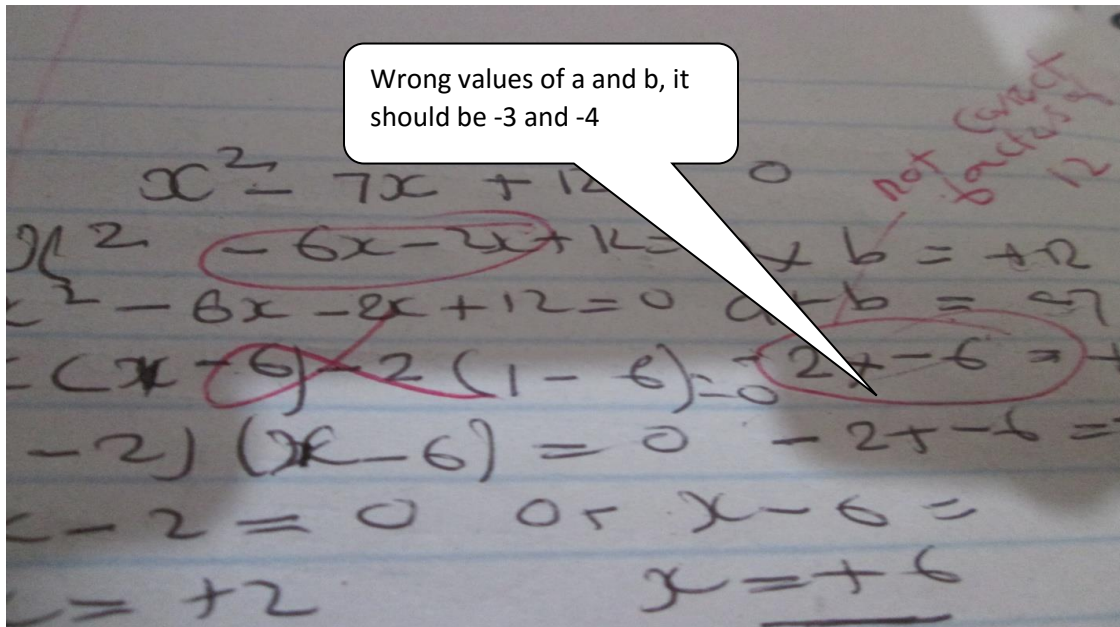 Wrong values of a and b, it
should be -3 and -4
not correct
factors of
12
x² - 7x + 12 0
x² - 6x - 2x + 12 = x b = +12
x² - 6x - 2x + 12 = 0 a + b = -7
(x - 6) - 2 (1 - 6) = 0 - 2x - 6 = +
- 2) (x - 6) = 0 - 2 + - 6 =
x - 2 = 0 or x - 6 =
= +2 x = +6